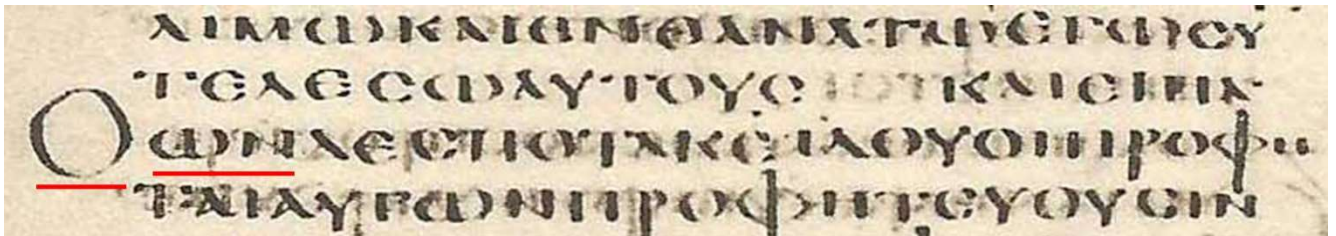 ΛΙΜΩΚΑΙΕΝΘΑΝΑΤΩΕΓΩCΥ
ΤΕΛΕCΩΑΥΤΟΥC ΚΑΙΕΙΠΑ
Ο ΩΝΔΕCΠΟΤΑΚΕΙΔΟΥΟΙΠΡΟΦΗ
ΤΑΙΑΥΤΩΝΠΡΟΦΗΤΕΥΟΥCΙΝ